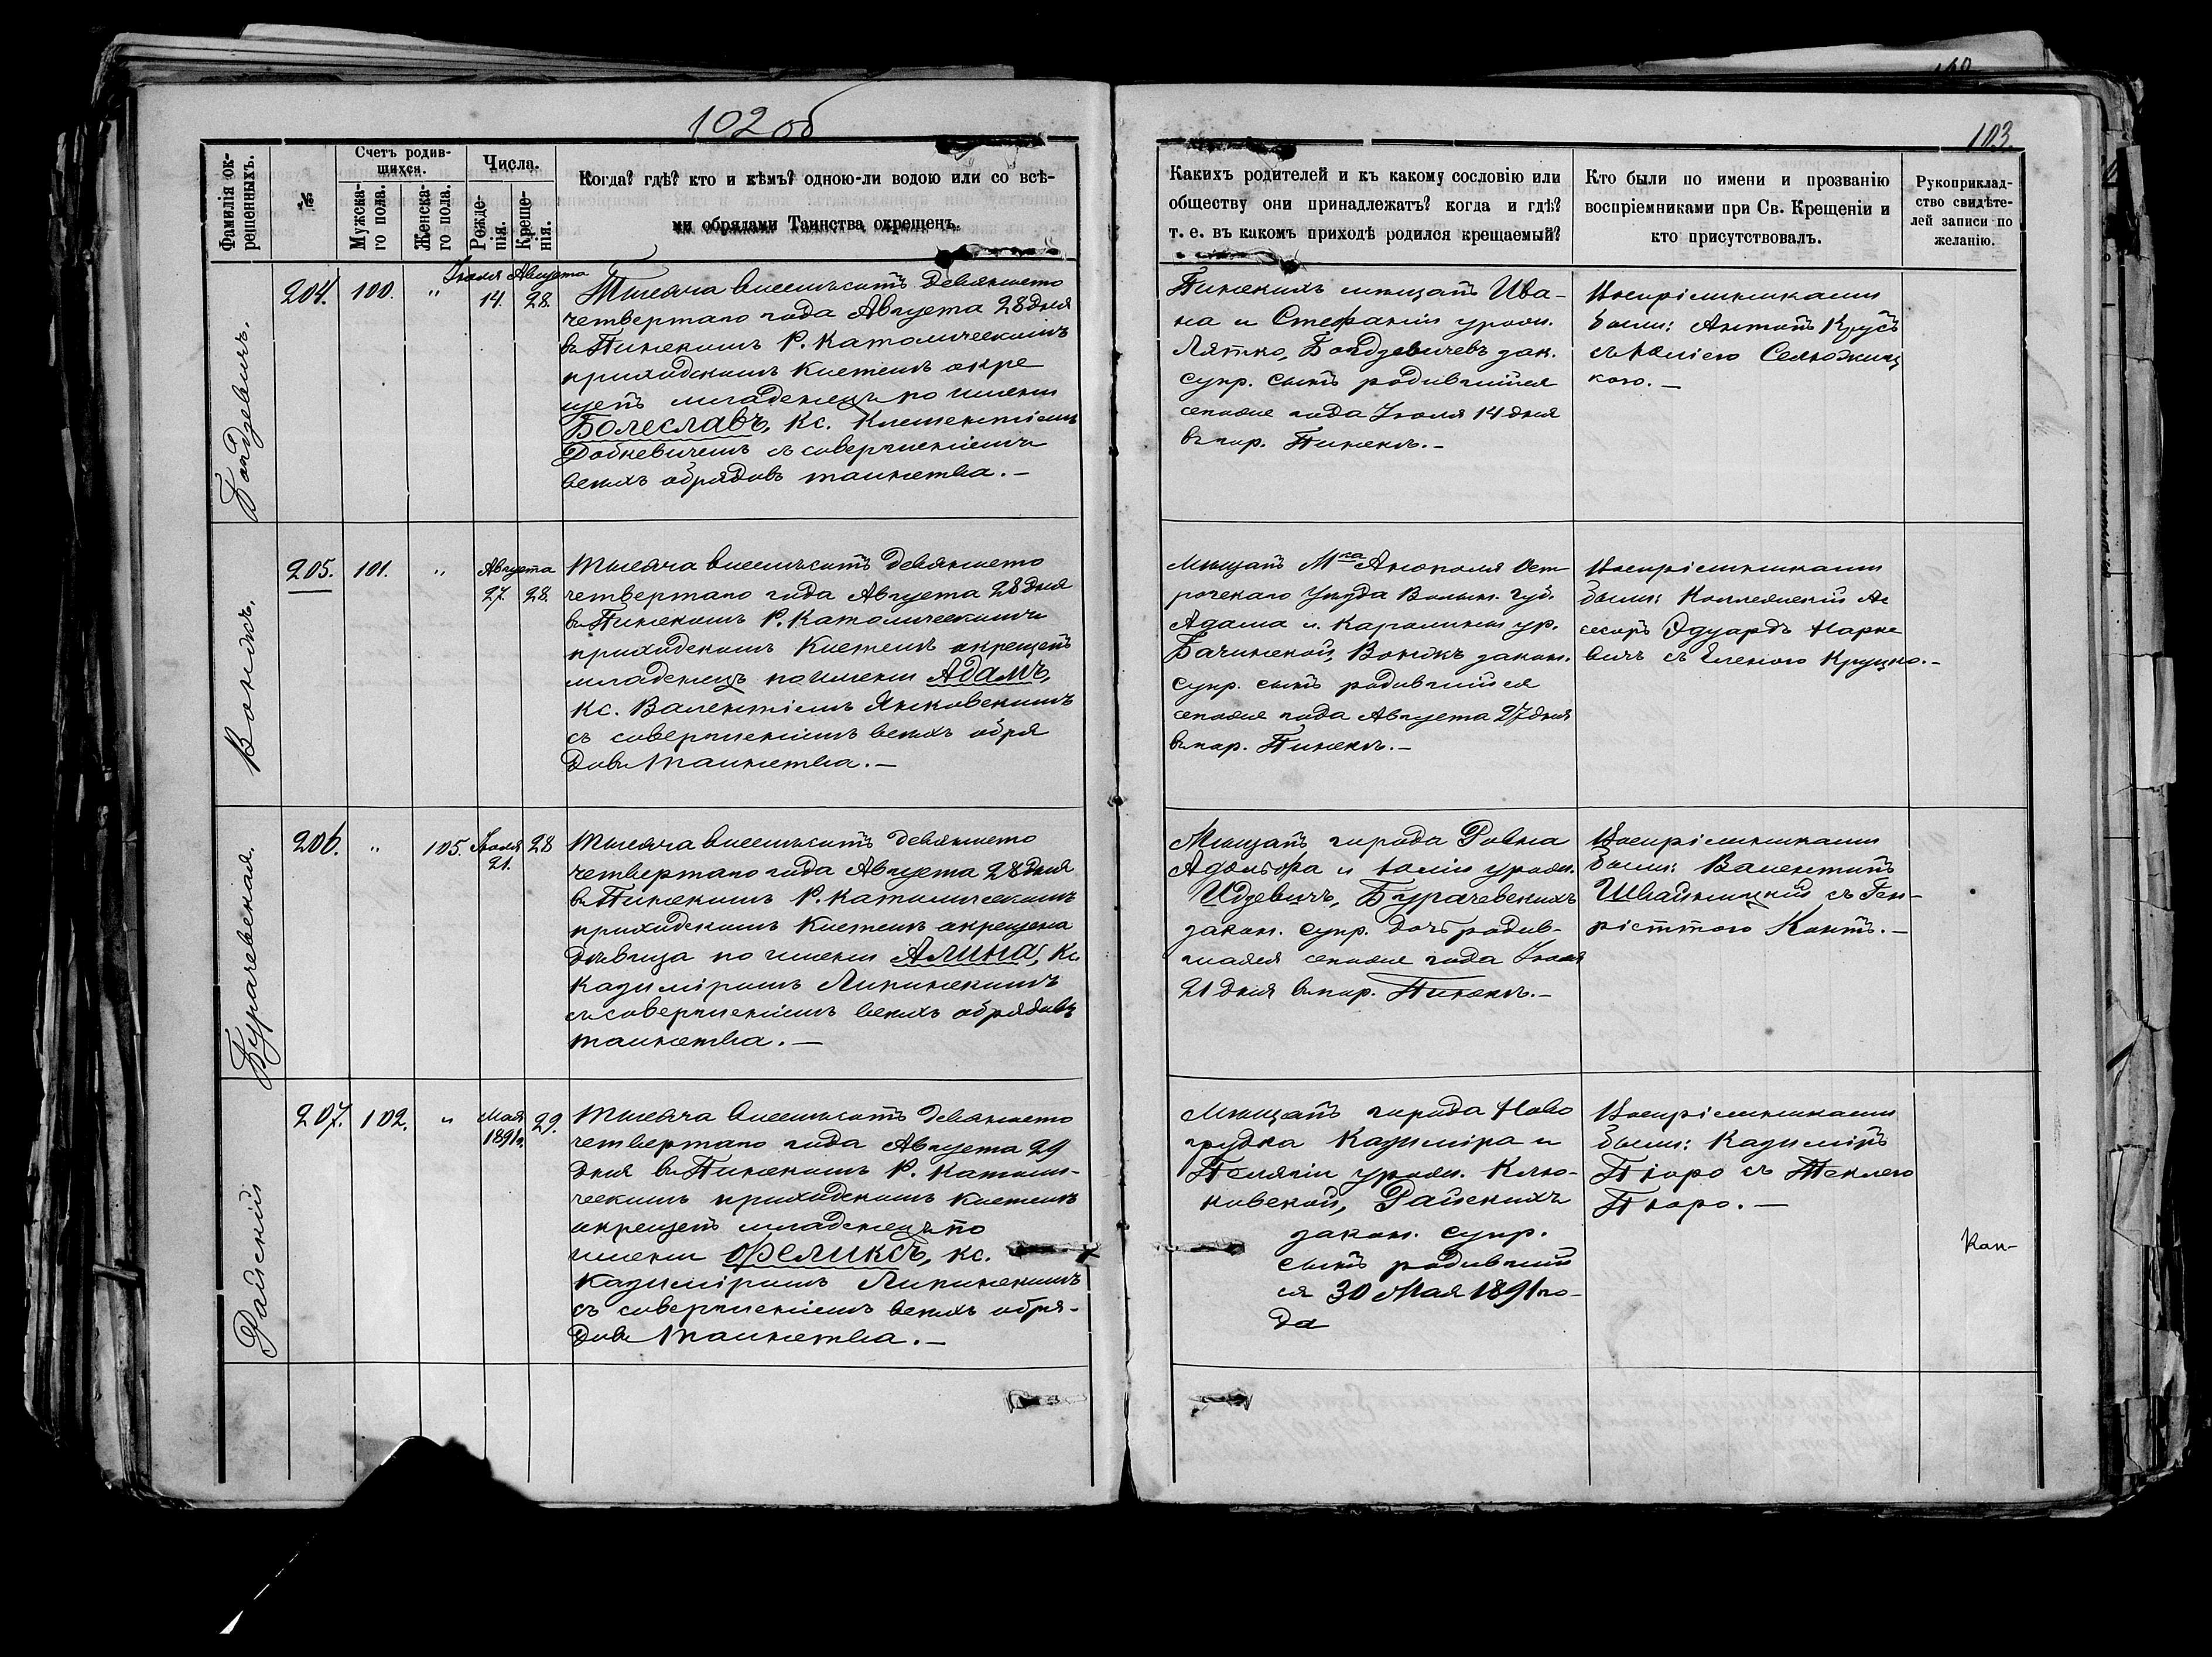 102 об
103
Фамилія ок-
рещенныхъ.
№
Счетъ родив-
шихся.
Мужска-
го пола.
Женска-
го пола.
Числа.
Рожде-
нія.
Креще-
нія.
Когда? гдѣ? кто и кѣмъ? одною-ли водою или со всѣ-
ми обрядами Таинства окрещенъ.
Какихъ родителей и къ какому сословію или
обществу они принадлежатъ? когда и гдѣ?
т. е. въ какомъ приходѣ родился крещаемый?
Кто были по имени и прозванію
воспріемниками при Св. Крещеніи и
кто присутствовалъ.
Рукоприклад-
ство свидѣте-
лей записи по
желанію.
204.
100.
"
Іюля Августа
14. 28.
Тысяча восемьсотъ девяносто
четвертаго года Августа 28 дня
въ Пинскомъ Р. Католическомъ
приходскомъ Костелѣ окре
щенъ младенецъ по имени
Болеславъ, Кс. Климентіемъ
съ совершеніемъ
всѣхъ обрядовъ таинства.–
Пинскихъ мѣщанъ Ива-
на и Стефаніи урожд.
Лятко, зак.
супр. сынъ родившійся
сегоже года Іюля 14 дня
въ пар. Пинскѣ.–
Воспріемниками
были: Антонъ Крусъ
205.
101.
"
Августа
27. 28.
Вонжъ.
Тысяча восемьсотъ девяносто
четвертаго года Августа 28 дня
въ Пинскомъ Р. Католическомъ
приходскомъ Костелѣ окрещенъ
младенецъ по имени Адамъ,
Кс. Валентіемъ Янковскимъ
съ совершеніемъ всѣхъ обря
довъ Таинства.–
Мѣщанъ Мка Аннополя Ост
рогскаго Уѣзда Волын. губ.
Адама и Каролины ур.
Бачинской, Вонжъ закон.
супр. сынъ родившійся
сегоже года Августа 27 дня
въ пар. Пинскѣ.–
Воспріемниками
были: Коллежскій Ас
сесоръ Эдуардъ Нарке
вичъ съ Еленою Круцко.–
206.
"
105.
Іюля 28
21.
Бурачевская.
Тысяча восемьсотъ девяносто
четвертаго года Августа 28 дня
въ Пинскомъ Р. Католическомъ
приходскомъ Костелѣ окрещена
дѣвица по имени Алина, Кс
Казиміромъ Липинскимъ
съ совершеніемъ всѣхъ обрядовъ
таинства.–
Мѣщанъ города Ровна
Адольфа и Юліи урожд.
Идзевичъ, Бурачевскихъ
закон. супр. дочь родив-
шаяся сегоже года Іюля
21 дня въ пар. Пинскѣ.–
Воспріемниками
были: Валентинъ
Швайницкій съ Ген-
ріеттою Контъ.–
207.
102.
"
Мая 29.
1891 г.
Райскій
Тысяча восемьсотъ девяносто
четвертаго года Августа 29
дня въ Пинскомъ Р. Католи-
ческомъ приходскомъ Костелѣ
окрещенъ младенецъ по
имени Феликсъ, Кс.
Казиміромъ Липинскимъ
съ совершеніемъ всѣхъ обря-
довъ Таинства.–
Мѣщанъ города Ново
грудка Казиміра и
Пелягіи урожд. Клю-
ковской, Райскихъ
закон. супр.
сынъ родившій
ся 30 Мая 1891 го-
да
Воспріемниками
были: Казиміръ
Пюро съ Теклею
Пюро.–
Кан-